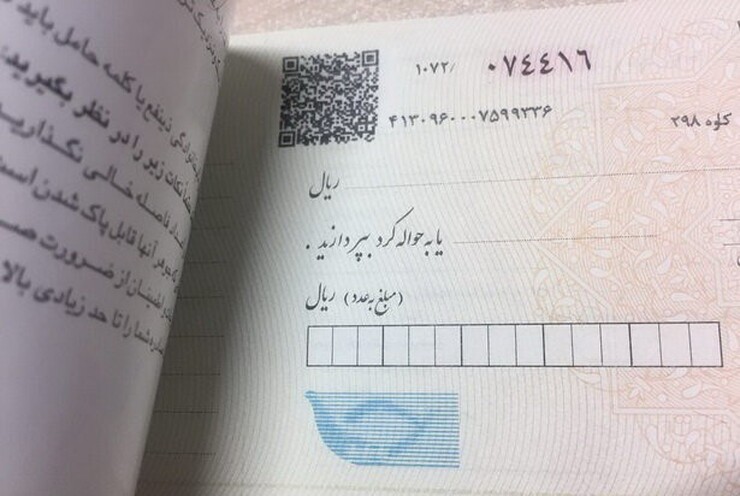 ۰۷۴۴۱۶ ۱۰۷۲/
۴۱۳۰۹۶۰۰۰۷۵۹۹۳۳۶
کاوه ۲۹۸
ریال
یا به حواله کرد بپردازید .
(مبلغ به عدد) ریال
ذینفع یا کلمه حامل باید
نکات زیر را در نظر بگیرید:
فاصله خالی نگذارید
که جوهر آنها قابل پاک شدن است
اطمینان از ضرورت
شما را تا حد زیادی بالا